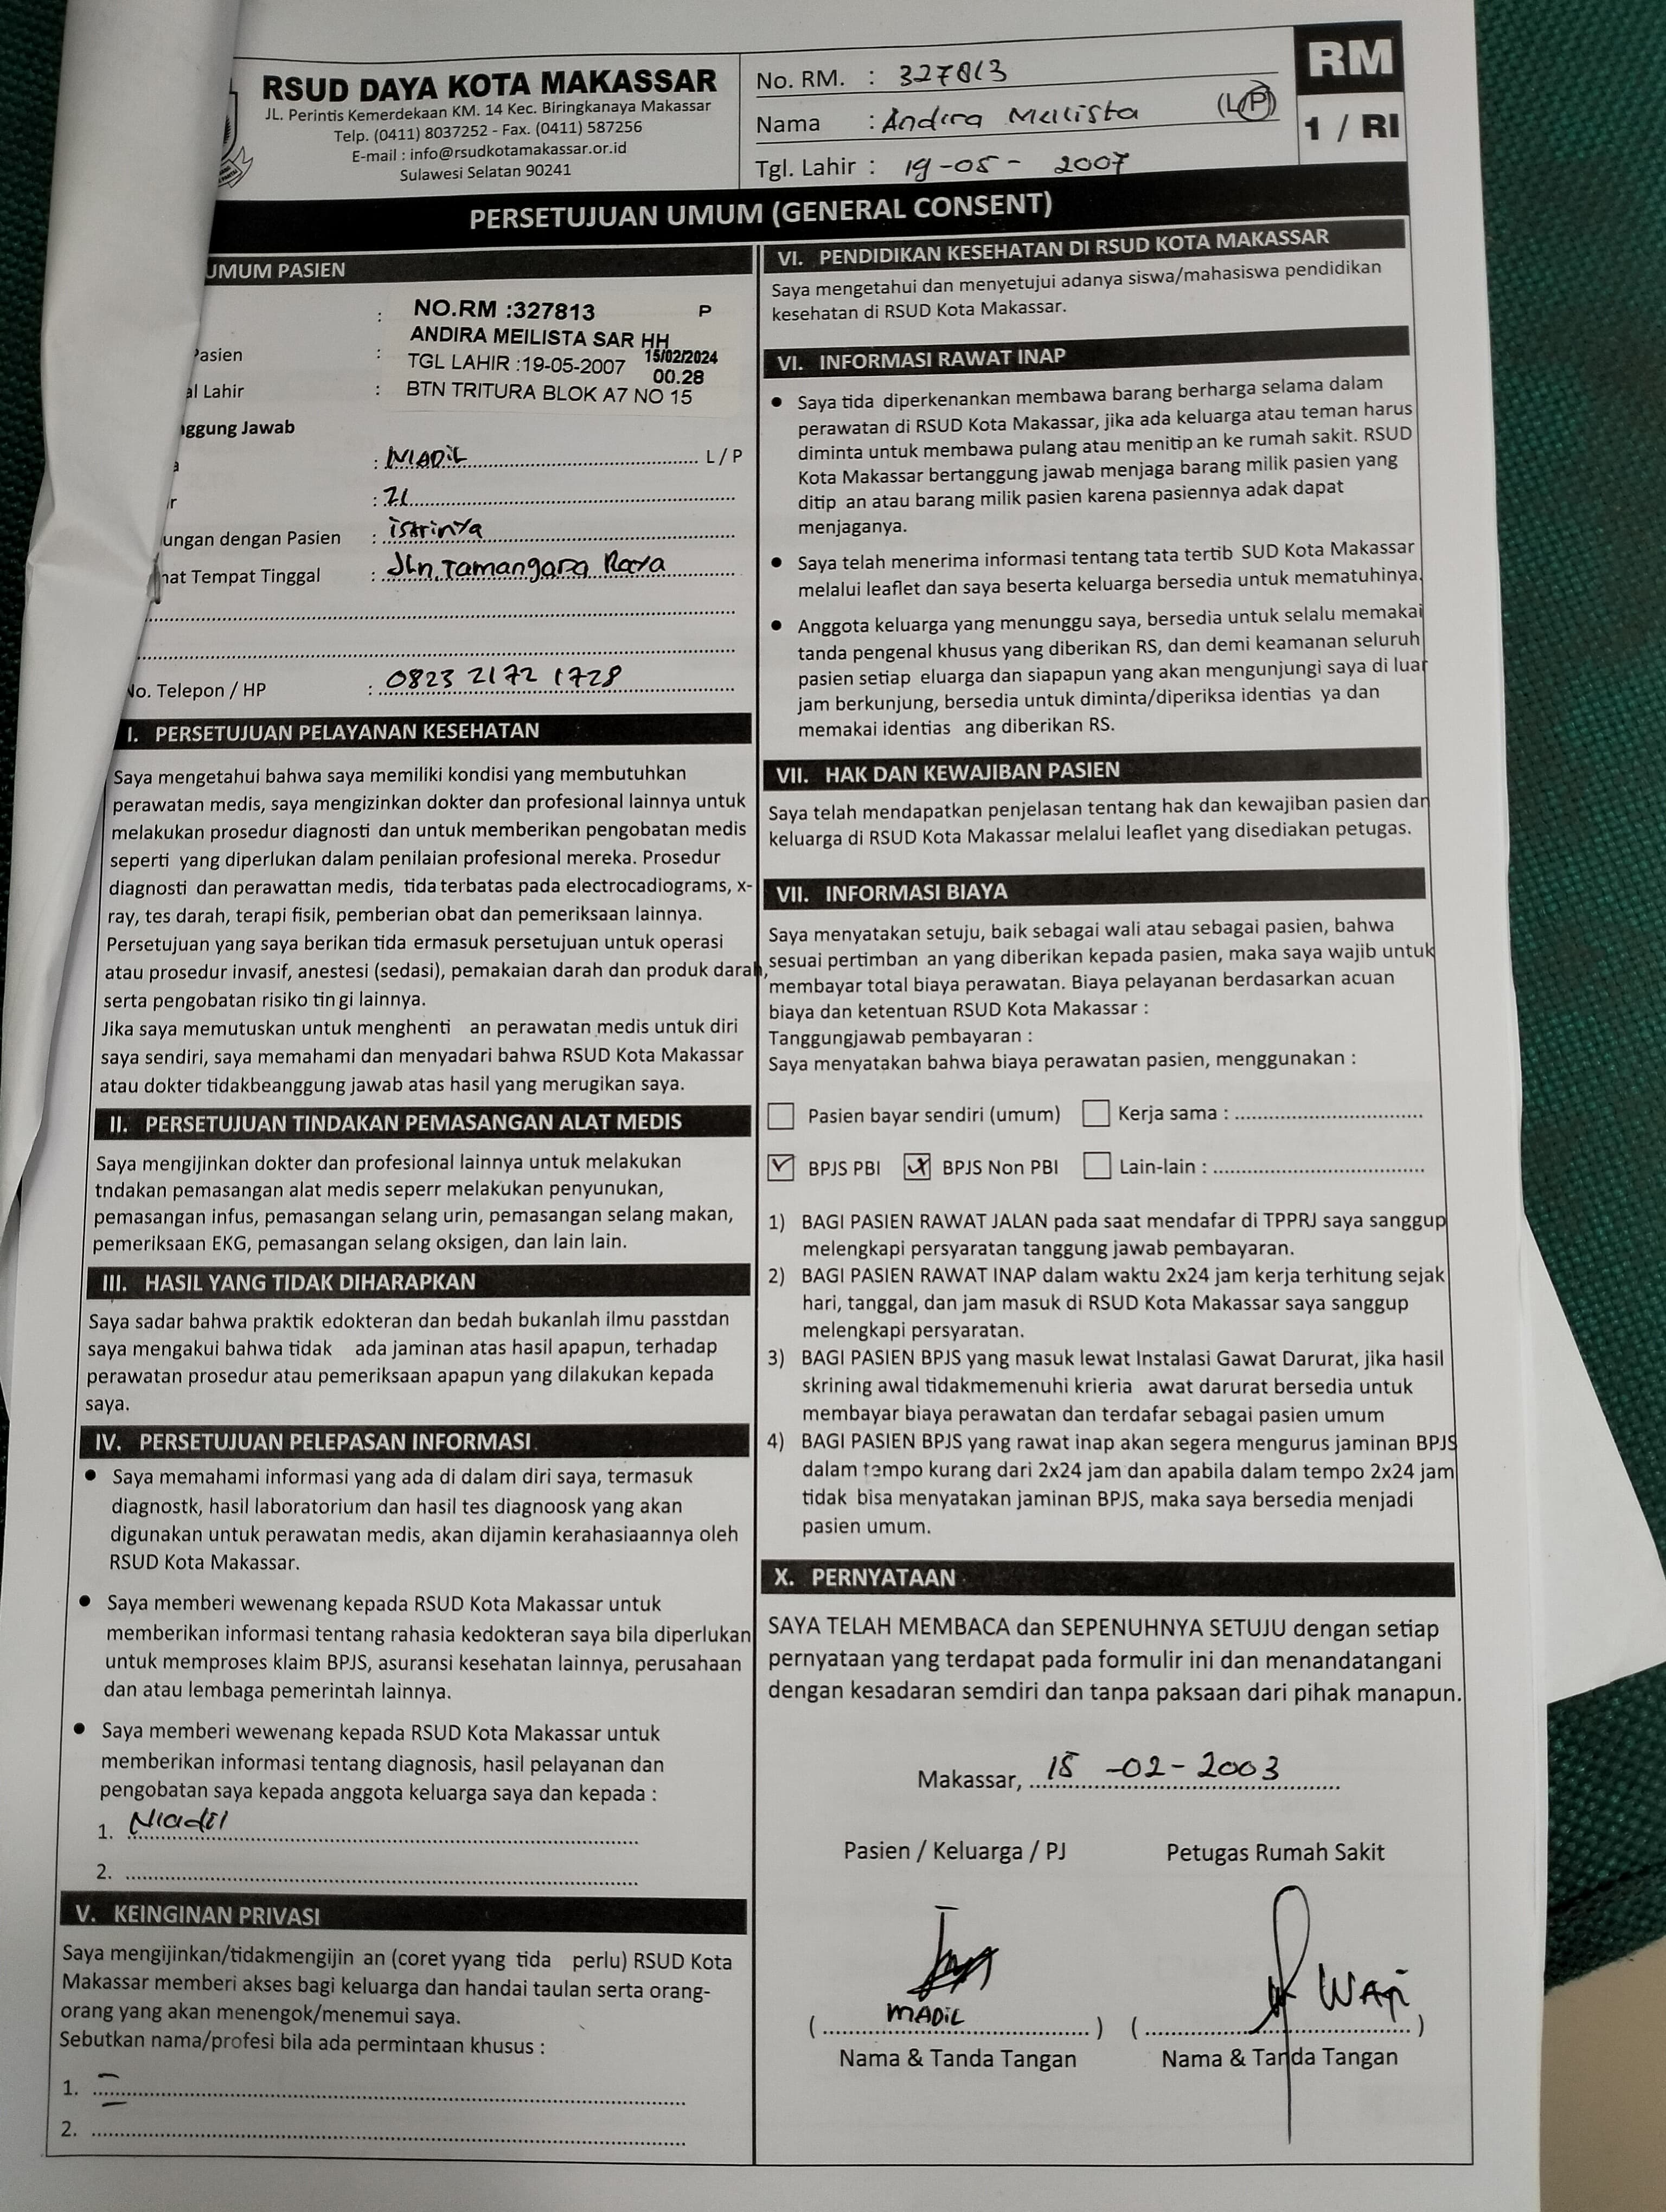 RSUD DAYA KOTA MAKASSAR
JL. Perintis Kemerdekaan KM. 14 Kec. Biringkanaya Makassar
Telp. (0411) 8037252 - Fax. (0411) 587256
E-mail : info@rsudkotamakassar.or.id
Sulawesi Selatan 90241
No. RM. : 327813
Nama : Andira Meilista (L/P)
Tgl. Lahir : 19-05-2007
RM
1 / RI
PERSETUJUAN UMUM (GENERAL CONSENT)
UMUM PASIEN
NO.RM :327813 P
ANDIRA MEILISTA SAR HH
Pasien : TGL LAHIR :19-05-2007 15/02/2024
00.28
al Lahir : BTN TRITURA BLOK A7 NO 15
ggung Jawab
a : MADIL L / P
r : 21
ungan dengan Pasien : istrinya
at Tempat Tinggal : Jln. Tamangapa Raya
No. Telepon / HP : 0823 2172 1728
I. PERSETUJUAN PELAYANAN KESEHATAN
Saya mengetahui bahwa saya memiliki kondisi yang membutuhkan
perawatan medis, saya mengizinkan dokter dan profesional lainnya untuk
melakukan prosedur diagnosti dan untuk memberikan pengobatan medis
seperti yang diperlukan dalam penilaian profesional mereka. Prosedur
diagnosti dan perawattan medis, tida terbatas pada electrocadiograms, x-
ray, tes darah, terapi fisik, pemberian obat dan pemeriksaan lainnya.
Persetujuan yang saya berikan tida ermasuk persetujuan untuk operasi
atau prosedur invasif, anestesi (sedasi), pemakaian darah dan produk darah,
serta pengobatan risiko tin gi lainnya.
Jika saya memutuskan untuk menghenti an perawatan medis untuk diri
saya sendiri, saya memahami dan menyadari bahwa RSUD Kota Makassar
atau dokter tidakbeanggung jawab atas hasil yang merugikan saya.
II. PERSETUJUAN TINDAKAN PEMASANGAN ALAT MEDIS
Saya mengijinkan dokter dan profesional lainnya untuk melakukan
tndakan pemasangan alat medis seperr melakukan penyunukan,
pemasangan infus, pemasangan selang urin, pemasangan selang makan,
pemeriksaan EKG, pemasangan selang oksigen, dan lain lain.
III. HASIL YANG TIDAK DIHARAPKAN
Saya sadar bahwa praktik edokteran dan bedah bukanlah ilmu passtdan
saya mengakui bahwa tidak ada jaminan atas hasil apapun, terhadap
perawatan prosedur atau pemeriksaan apapun yang dilakukan kepada
saya.
IV. PERSETUJUAN PELEPASAN INFORMASI
• Saya memahami informasi yang ada di dalam diri saya, termasuk
diagnostk, hasil laboratorium dan hasil tes diagnoosk yang akan
digunakan untuk perawatan medis, akan dijamin kerahasiaannya oleh
RSUD Kota Makassar.
• Saya memberi wewenang kepada RSUD Kota Makassar untuk
memberikan informasi tentang rahasia kedokteran saya bila diperlukan
untuk memproses klaim BPJS, asuransi kesehatan lainnya, perusahaan
dan atau lembaga pemerintah lainnya.
• Saya memberi wewenang kepada RSUD Kota Makassar untuk
memberikan informasi tentang diagnosis, hasil pelayanan dan
pengobatan saya kepada anggota keluarga saya dan kepada :
1. Madil
2.
V. KEINGINAN PRIVASI
Saya mengijinkan/tidakmengijin an (coret yyang tida perlu) RSUD Kota
Makassar memberi akses bagi keluarga dan handai taulan serta orang-
orang yang akan menengok/menemui saya.
Sebutkan nama/profesi bila ada permintaan khusus :
1.
2.
VI. PENDIDIKAN KESEHATAN DI RSUD KOTA MAKASSAR
Saya mengetahui dan menyetujui adanya siswa/mahasiswa pendidikan
kesehatan di RSUD Kota Makassar.
VI. INFORMASI RAWAT INAP
• Saya tida diperkenankan membawa barang berharga selama dalam
perawatan di RSUD Kota Makassar, jika ada keluarga atau teman harus
diminta untuk membawa pulang atau menitip an ke rumah sakit. RSUD
Kota Makassar bertanggung jawab menjaga barang milik pasien yang
ditip an atau barang milik pasien karena pasiennya adak dapat
menjaganya.
• Saya telah menerima informasi tentang tata tertib SUD Kota Makassar
melalui leaflet dan saya beserta keluarga bersedia untuk mematuhinya.
• Anggota keluarga yang menunggu saya, bersedia untuk selalu memakai
tanda pengenal khusus yang diberikan RS, dan demi keamanan seluruh
pasien setiap eluarga dan siapapun yang akan mengunjungi saya di luar
jam berkunjung, bersedia untuk diminta/diperiksa identias ya dan
memakai identias ang diberikan RS.
VII. HAK DAN KEWAJIBAN PASIEN
Saya telah mendapatkan penjelasan tentang hak dan kewajiban pasien dan
keluarga di RSUD Kota Makassar melalui leaflet yang disediakan petugas.
VII. INFORMASI BIAYA
Saya menyatakan setuju, baik sebagai wali atau sebagai pasien, bahwa
sesuai pertimban an yang diberikan kepada pasien, maka saya wajib untuk
membayar total biaya perawatan. Biaya pelayanan berdasarkan acuan
biaya dan ketentuan RSUD Kota Makassar :
Tanggungjawab pembayaran :
Saya menyatakan bahwa biaya perawatan pasien, menggunakan :
Pasien bayar sendiri (umum) Kerja sama :
BPJS PBI BPJS Non PBI Lain-lain :
1) BAGI PASIEN RAWAT JALAN pada saat mendafar di TPPRJ saya sanggup
melengkapi persyaratan tanggung jawab pembayaran.
2) BAGI PASIEN RAWAT INAP dalam waktu 2x24 jam kerja terhitung sejak
hari, tanggal, dan jam masuk di RSUD Kota Makassar saya sanggup
melengkapi persyaratan.
3) BAGI PASIEN BPJS yang masuk lewat Instalasi Gawat Darurat, jika hasil
skrining awal tidakmemenuhi krieria awat darurat bersedia untuk
membayar biaya perawatan dan terdafar sebagai pasien umum
4) BAGI PASIEN BPJS yang rawat inap akan segera mengurus jaminan BPJS
dalam tempo kurang dari 2x24 jam dan apabila dalam tempo 2x24 jam
tidak bisa menyatakan jaminan BPJS, maka saya bersedia menjadi
pasien umum.
X. PERNYATAAN
SAYA TELAH MEMBACA dan SEPENUHNYA SETUJU dengan setiap
pernyataan yang terdapat pada formulir ini dan menandatangani
dengan kesadaran semdiri dan tanpa paksaan dari pihak manapun.
Makassar, 15 -02-2003
Pasien / Keluarga / PJ Petugas Rumah Sakit
( MADIL ) ( )
Nama & Tanda Tangan Nama & Tanda Tangan